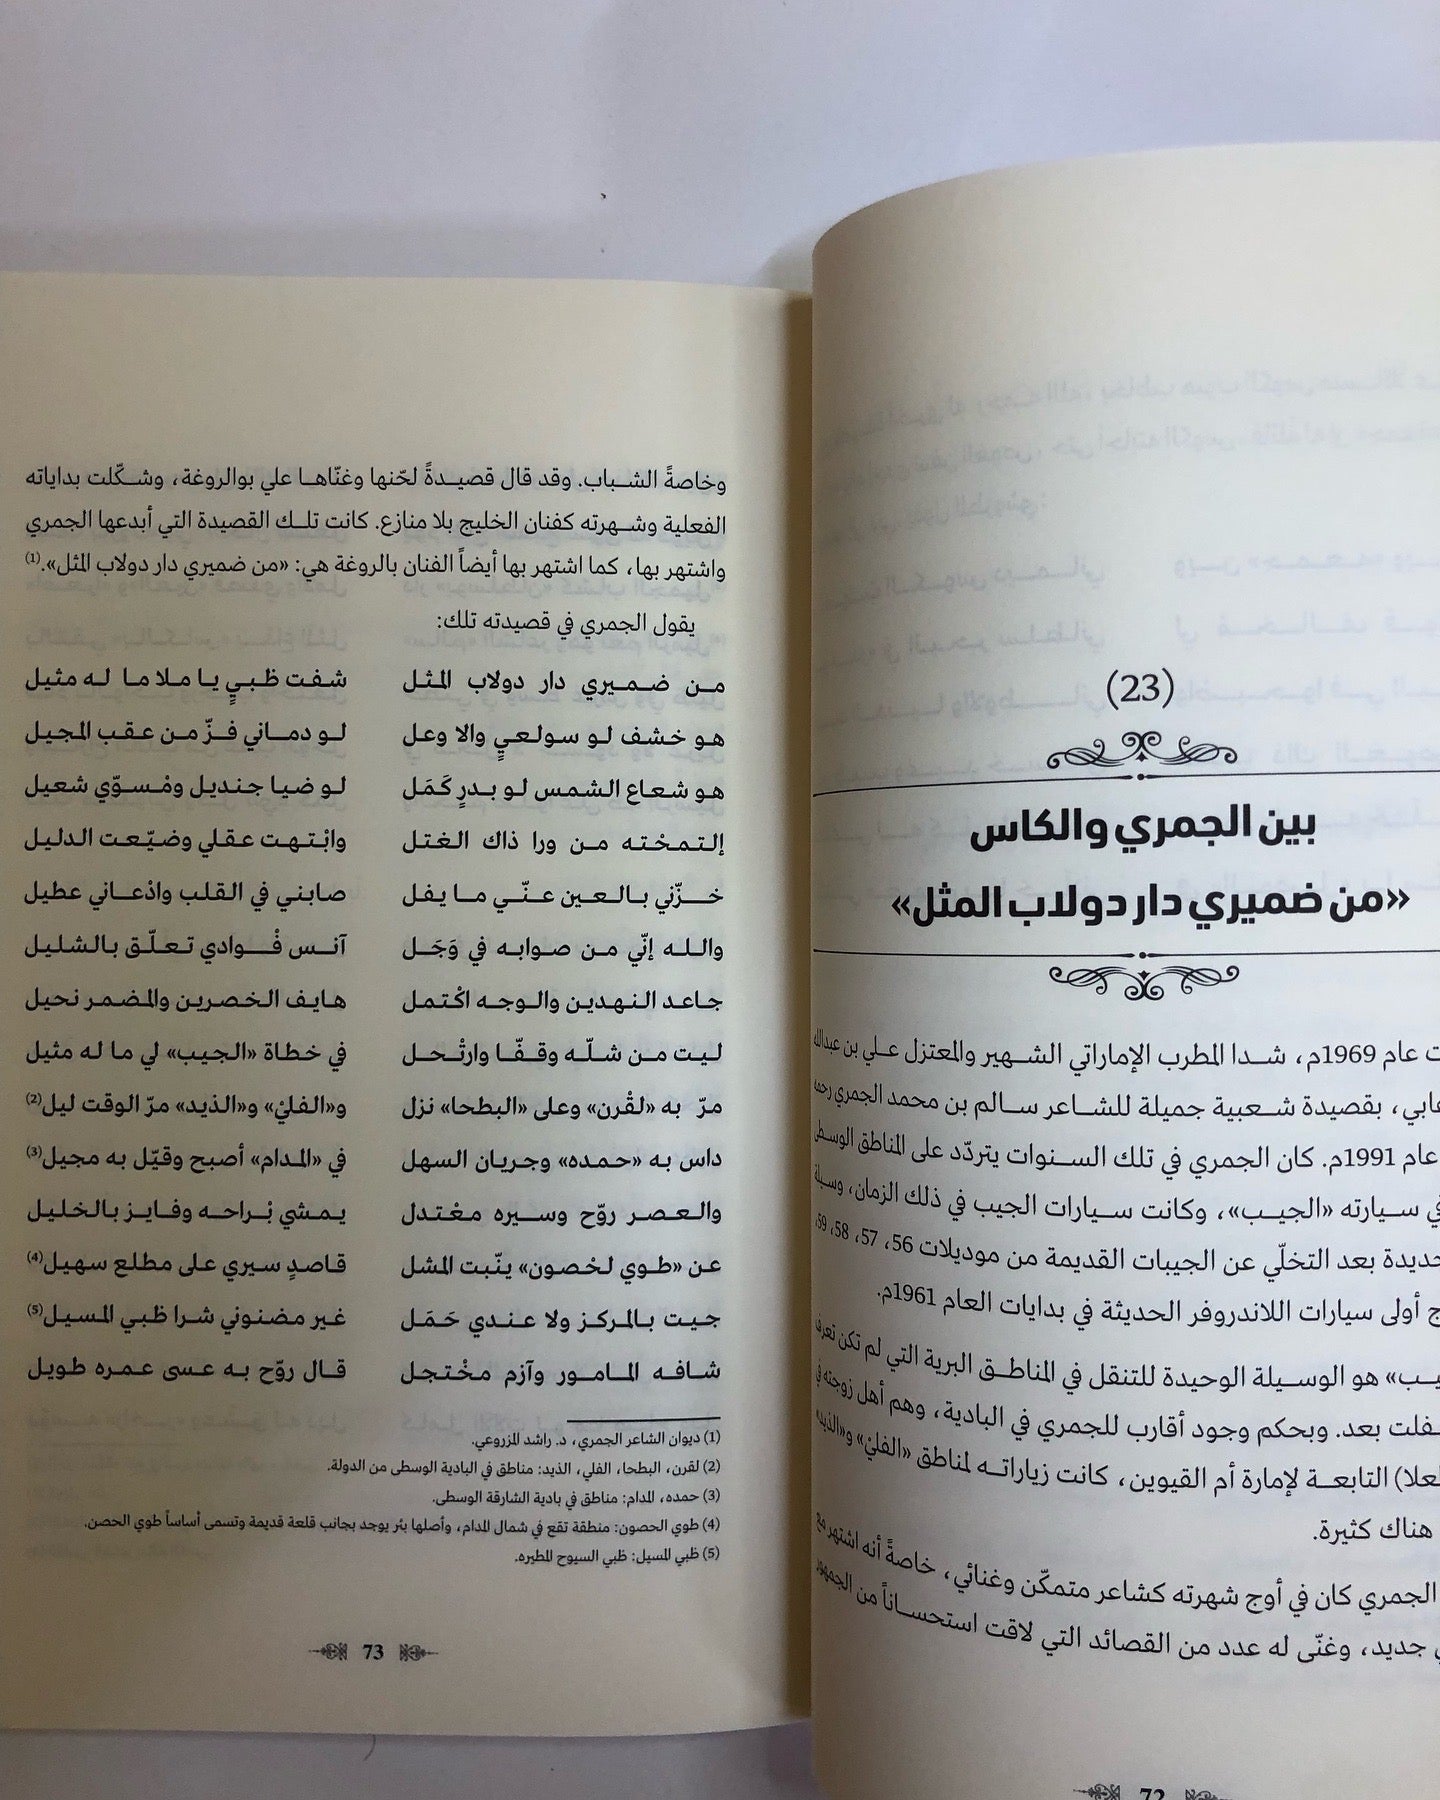 (23)
بين الجمري والكاس
«من ضميري دار دولاب المثل»
عام 1969م، شدا المطرب الإماراتي الشهير والمعتزل علي بن عبدالله
بقصيدة شعبية جميلة للشاعر سالم بن محمد الجمري رحمه
عام 1991م. كان الجمري في تلك السنوات يتردّد على المناطق الوسطى
سيارته «الجيب»، وكانت سيارات الجيب في ذلك الزمان، وسيلة
بعد التخلّي عن الجيبات القديمة من موديلات 56، 57، 58، 59،
أولى سيارات اللاندروفر الحديثة في بدايات العام 1961م.
هو الوسيلة الوحيدة للتنقل في المناطق البرية التي لم تكن تعرف
بعد. وبحكم وجود أقارب للجمري في البادية، وهم أهل زوجته في
التابعة لإمارة أم القيوين، كانت زياراته لمناطق «الفليْ» و«الذيد»
هناك كثيرة.
الجمري كان في أوج شهرته كشاعر متمكّن وغنائي، خاصةً أنه اشتهر مع
جديد، وغنّى له عدد من القصائد التي لاقت استحساناً من الجمهور
72
وخاصةً الشباب. وقد قال قصيدةً لحّنها وغنّاها علي بوالروغة، وشكّلت بداياته
الفعلية وشهرته كفنان الخليج بلا منازع. كانت تلك القصيدة التي أبدعها الجمري
واشتهر بها، كما اشتهر بها أيضاً الفنان بالروغة هي: «من ضميري دار دولاب المثل».(1)
يقول الجمري في قصيدته تلك:
من ضميري دار دولاب المثل شفت ظبيٍ يا ملا ما له مثيل
هو خشف لو سولعيٍ والا وعل لو دماني فزّ من عقب المجيل
هو شعاع الشمس لو بدرٍ كَمَل لو ضيا جنديل ومْسوّي شعيل
إلتمحْته من ورا ذاك الغتل وانْتهت عقلي وضيّعت الدليل
خزّني بالعين عنّي ما يفل صابني في القلب وادْعاني عطيل
والله إنّي من صوابه في وَجَل آنس فْوادي تعلّق بالشليل
جاعد النهدين والوجه اكْتمل هايف الخصرين والمضمر نحيل
ليت من شلّه وقفّا وارتْحل في خطاة «الجيب» لي ما له مثيل
مرّ به «لقْرن» وعلى «البطحا» نزل و«الفليْ» و«الذيد» مرّ الوقت ليل(2)
داس به «حمده» وجريان السهل في «المدام» أصبح وقيّل به مجيل(3)
والعصر روّح وسيره معْتدل يمشي بْراحه وفايز بالخليل
عن «طوي لحْصون» ينّبت المشل قاصدٍ سيري على مطلع سهيل(4)
جيت بالمركز ولا عندي حَمَل غير مضنوني شرا ظبي المسيل(5)
شافه المامور وآزم مخْتجل قال روّح به عسى عمره طويل
(1) ديوان الشاعر الجمري، د. راشد المزروعي.
(2) لقرن، البطحا، الفلي، الذيد: مناطق في البادية الوسطى من الدولة.
(3) حمده، المدام: مناطق في بادية الشارقة الوسطى.
(4) طوي الحصون: منطقة تقع في شمال المدام، وأصلها بئر يوجد بجانب قلعة قديمة وتسمى أساساً طوي الحصن.
(5) ظبي المسيل: ظبي السيوح المطيره.
73